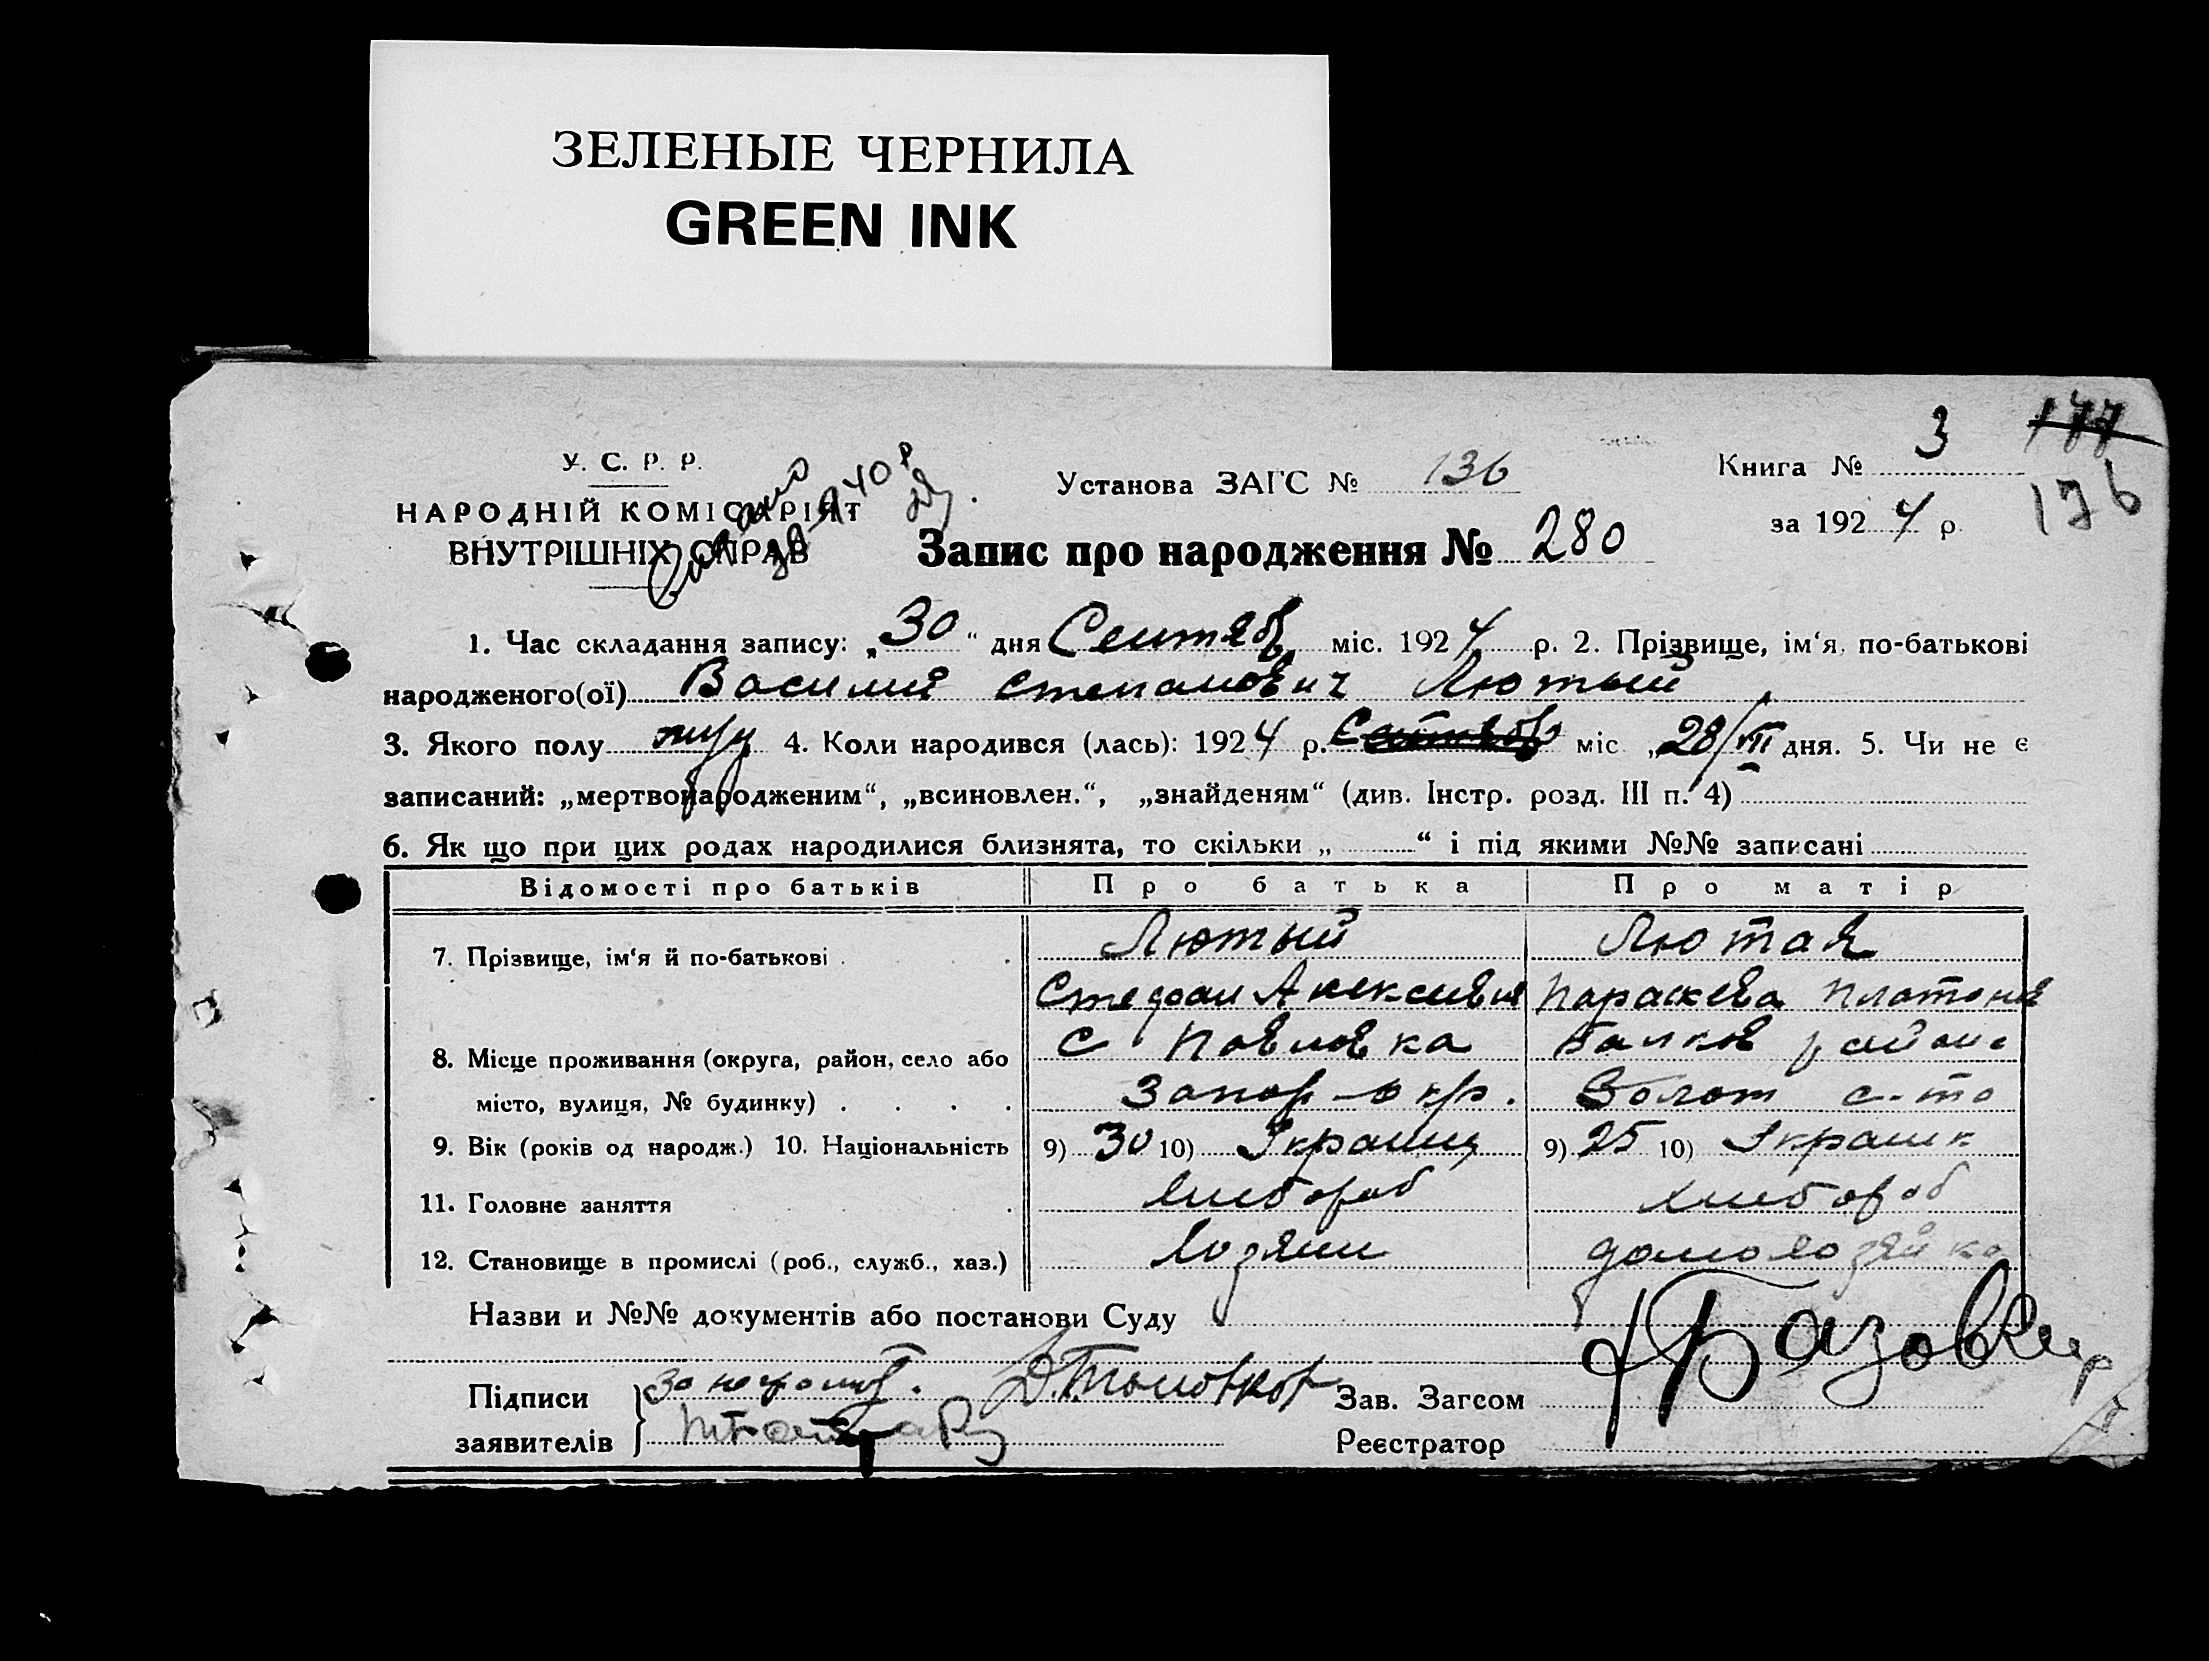 ЗЕЛЕНЫЕ ЧЕРНИЛА
GREEN INK
177
У. С. Р. Р.
НАРОДНІЙ КОМІСАРІЯТ
ВНУТРІШНІХ СПРАВ
Установа ЗАГС № 136
Книга № 3
176
за 1924 р.
Запис про народження № 280
1. Час складання запису: „30“ дня Сентяб міс. 1924 р. 2. Прізвище, ім‘я, по-батькові
народженого(ої) Василий Степанович Лютый
3. Якого полу муж 4. Коли народився (лась): 1924 р. Сентябр міс „28/VII дня. 5. Чи не є
записаний: „мертвонародженим“, „всиновлен.“, „знайденям“ (див. Інстр. розд. III п. 4)
6. Як що при цих родах народилися близнята, то скільки „ “ і під якими №№ записані
Відомості про батьків Про батька Про матір
7. Прізвище, ім‘я й по-батькові Лютый Лютая
Стефан Алексиевич Параскева Платонов
8. Місце проживання (округа, район, село або с Павловка Балков района
місто, вулиця, № будинку) Запор окр. с-та
9. Вік (років од народж.) 10. Національність 9) 30 10) Украинц 9) 25 10) Украинк
11. Головне заняття Хлебороб Хлебороб
12. Становище в промислі (роб., служб., хаз.) Хозяин домохозяйка
Назви и №№ документів або постанови Суду
Підписи За неграмот. Зав. Загсом
заявителів Реєстратор